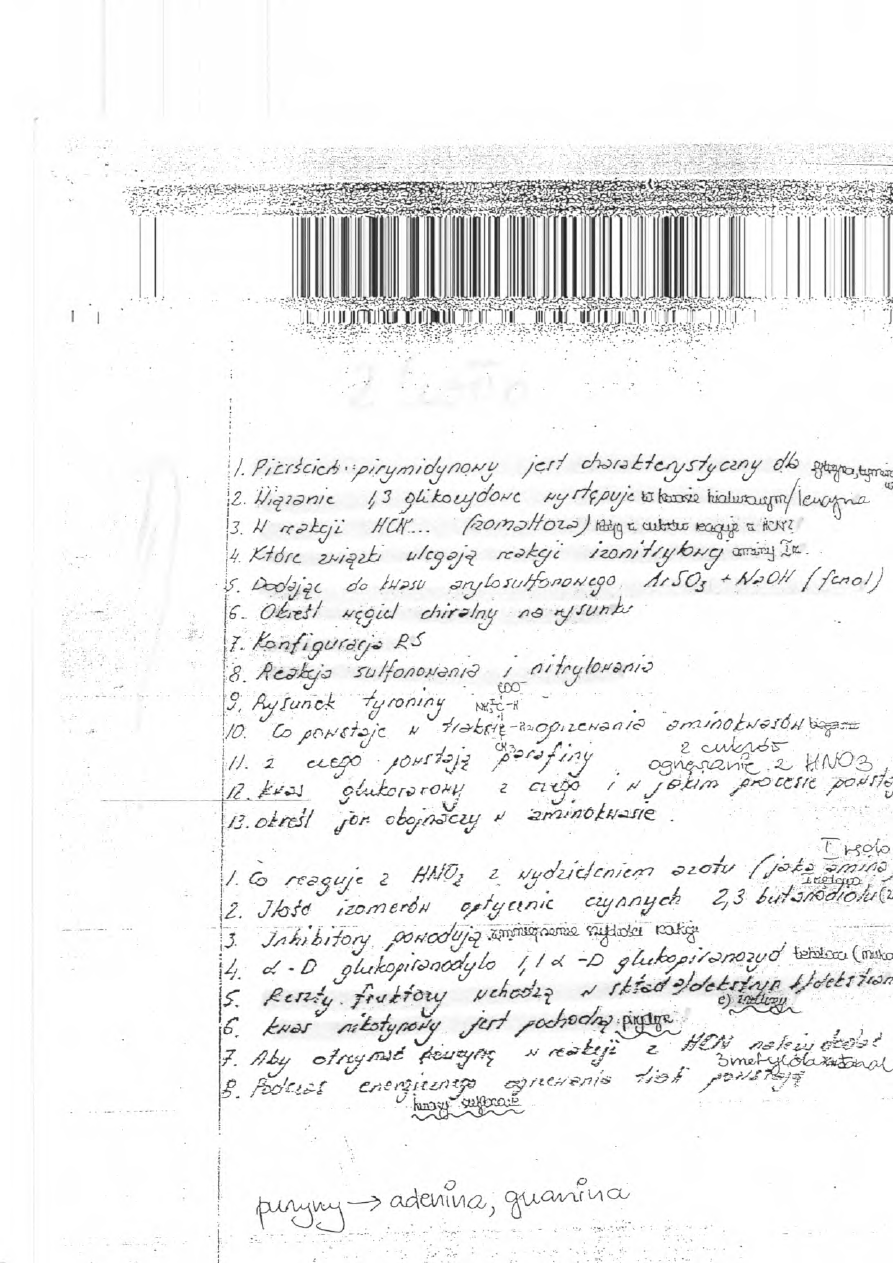 1. Pierścień pirymidynowy jest charakterystyczny dla cytozyna, tymina
2. Wiązanie 1,3 glikozydowe występuje w kwasie hialuronowym/
3. W reakcji HCN... (izomaltoza) który z cukrów reaguje z HCN?
4. Które związki ulegają reakcji izonitrylowej aminy Irz.
5. Dodając do kwasu arylosulfonowego ArSO3 + NaOH (fenol)
6. Określ węgiel chiralny na rysunku
7. Konfiguracja RS
8. Reakcja sulfonowania i nitrylowania
COO⁻
9. Rysunek tyroniny NH3⁺C-H
10. Co powstaje w trakcie ogrzewania aminokwasów
CH3
z cukrów
11. z czego powstają parafiny ogrzewanie z HNO3
12. kwas glukozarowy z czego i w jakim procesie
13. określ jon obojnaczy w aminokwasie.
I rzędo
1. Co reaguje z HNO2 z wydzieleniem azotu (jaka amina
2. Ilość izomerów optycznie czynnych 2,3 butanodiolu
3. Inhibitory powodują zmniejszenie szybkości reakcji
4. α-D glukopiranodylo 1,1 α-D glukopiranozyd
5. Reszty fruktozy wchodzą w skład a/dekstryn b/dekstran
c) inuliny
6. kwas nikotynowy jest pochodną pirydyny
7. Aby otrzymać leucynę w reakcji z HCN należy dodać
3metylobutanal
8. Podczas energicznego ogrzewania tioli powstają
kwasy sulfonowe
puryny → adenina, guanina